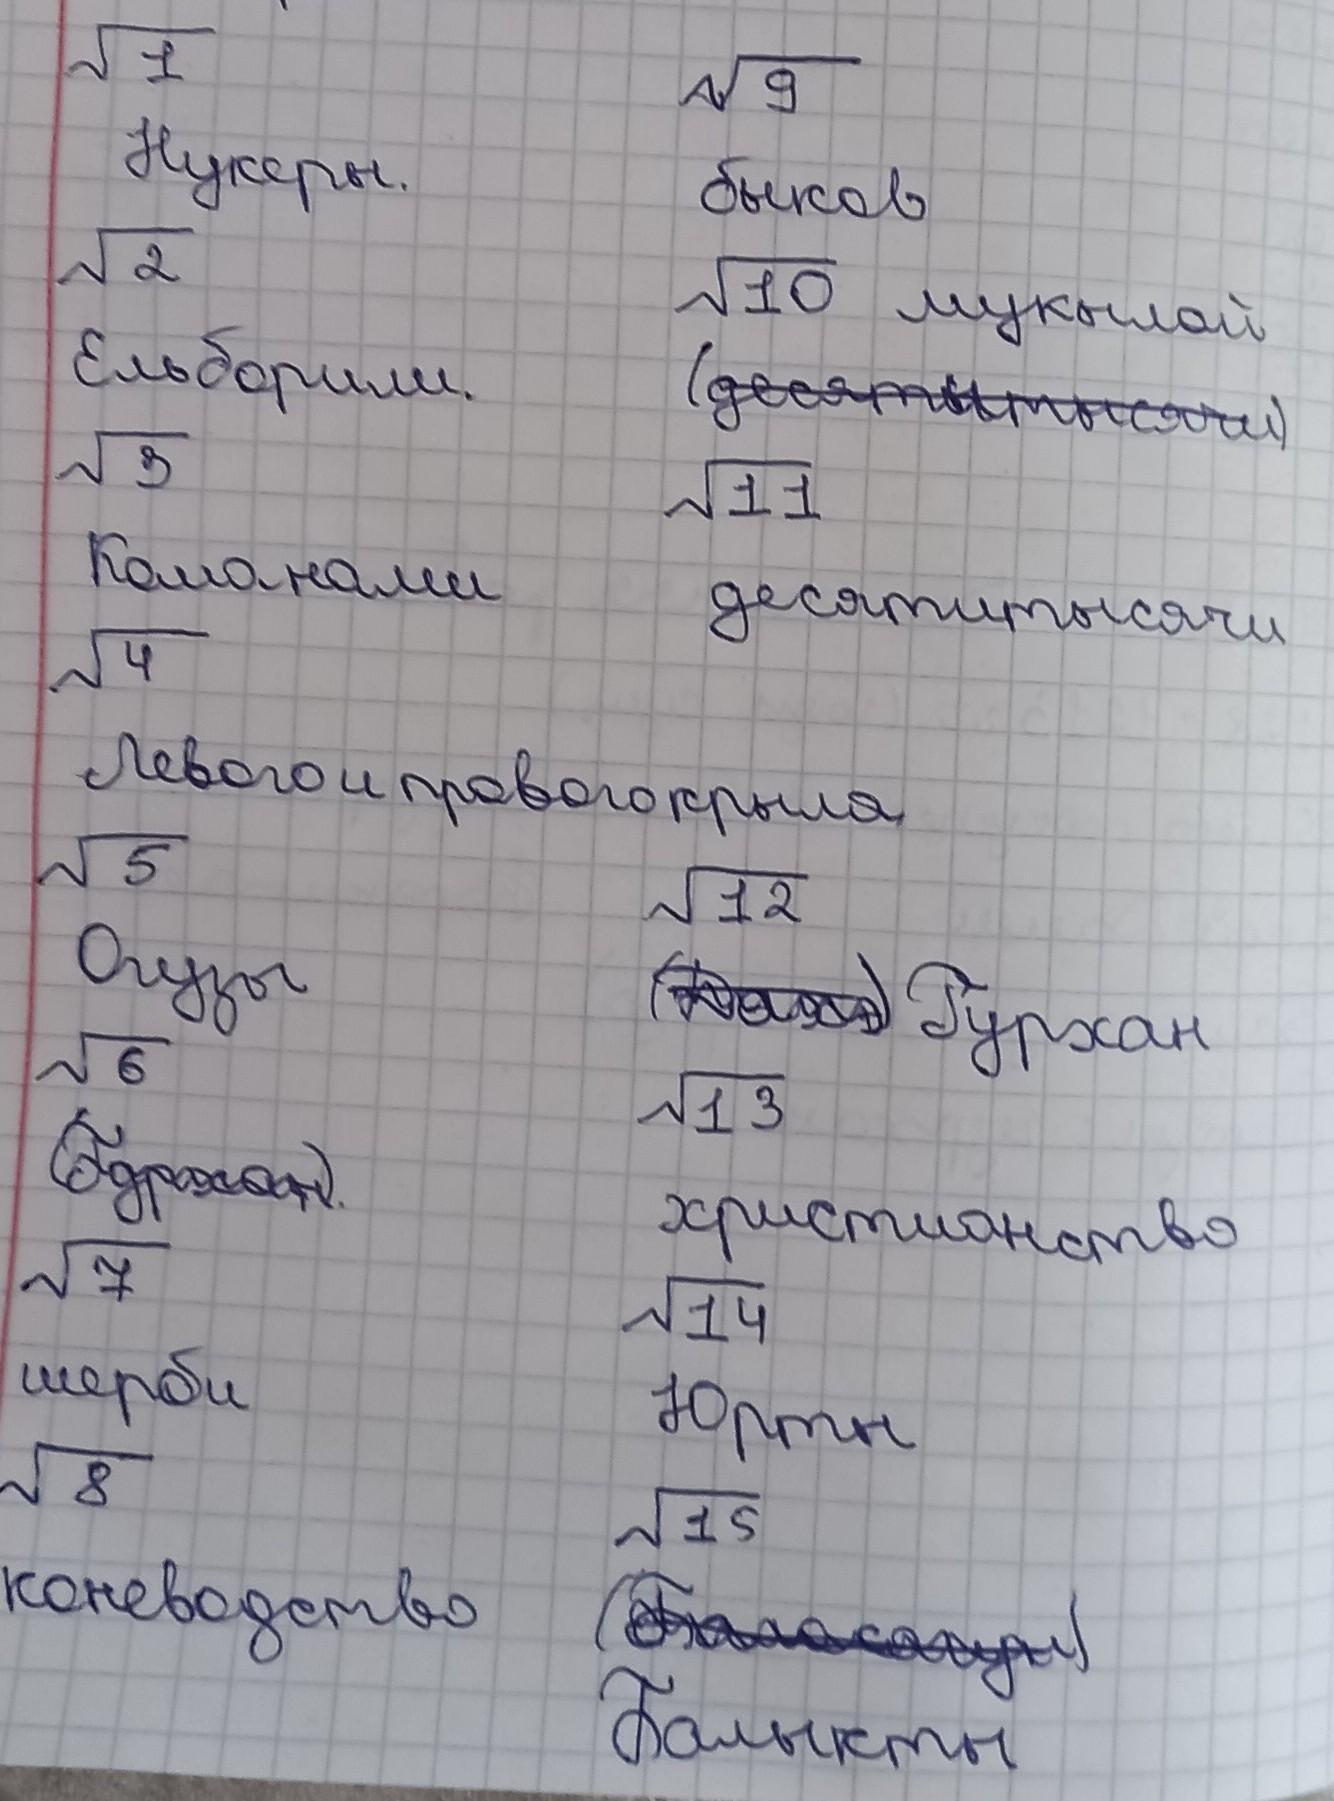 √1
Нукеры.
√2
Ельборили.
√3
Команами
√4
Левого и правого крыла
√5
Огузы
√6
(Гурхан).
√7
шерби
√8
коневодство
√9
быков
√10 мукылай
(десятытысячи)
√11
десятитысячи
√12
Гурхан
√13
христианство
√14
Юрты
√15
Балыкты